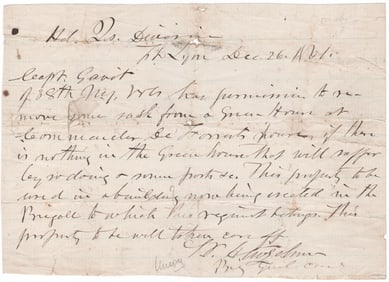 Hd. Qs. Division
Ft Lyon Dec. 26. 1861.
Capt. Gavit
of 38th Vols. has permission to re-
move some sash from a Green House at
Commander De house, if there
is nothing in the Green House that will suffer
by so doing & some posts &c. This property to be
used in a building now being erected in the
Brigade to which this regiment belongs. This
property to be well taken care of
S. P. Heintzelman
Brig Genl Com